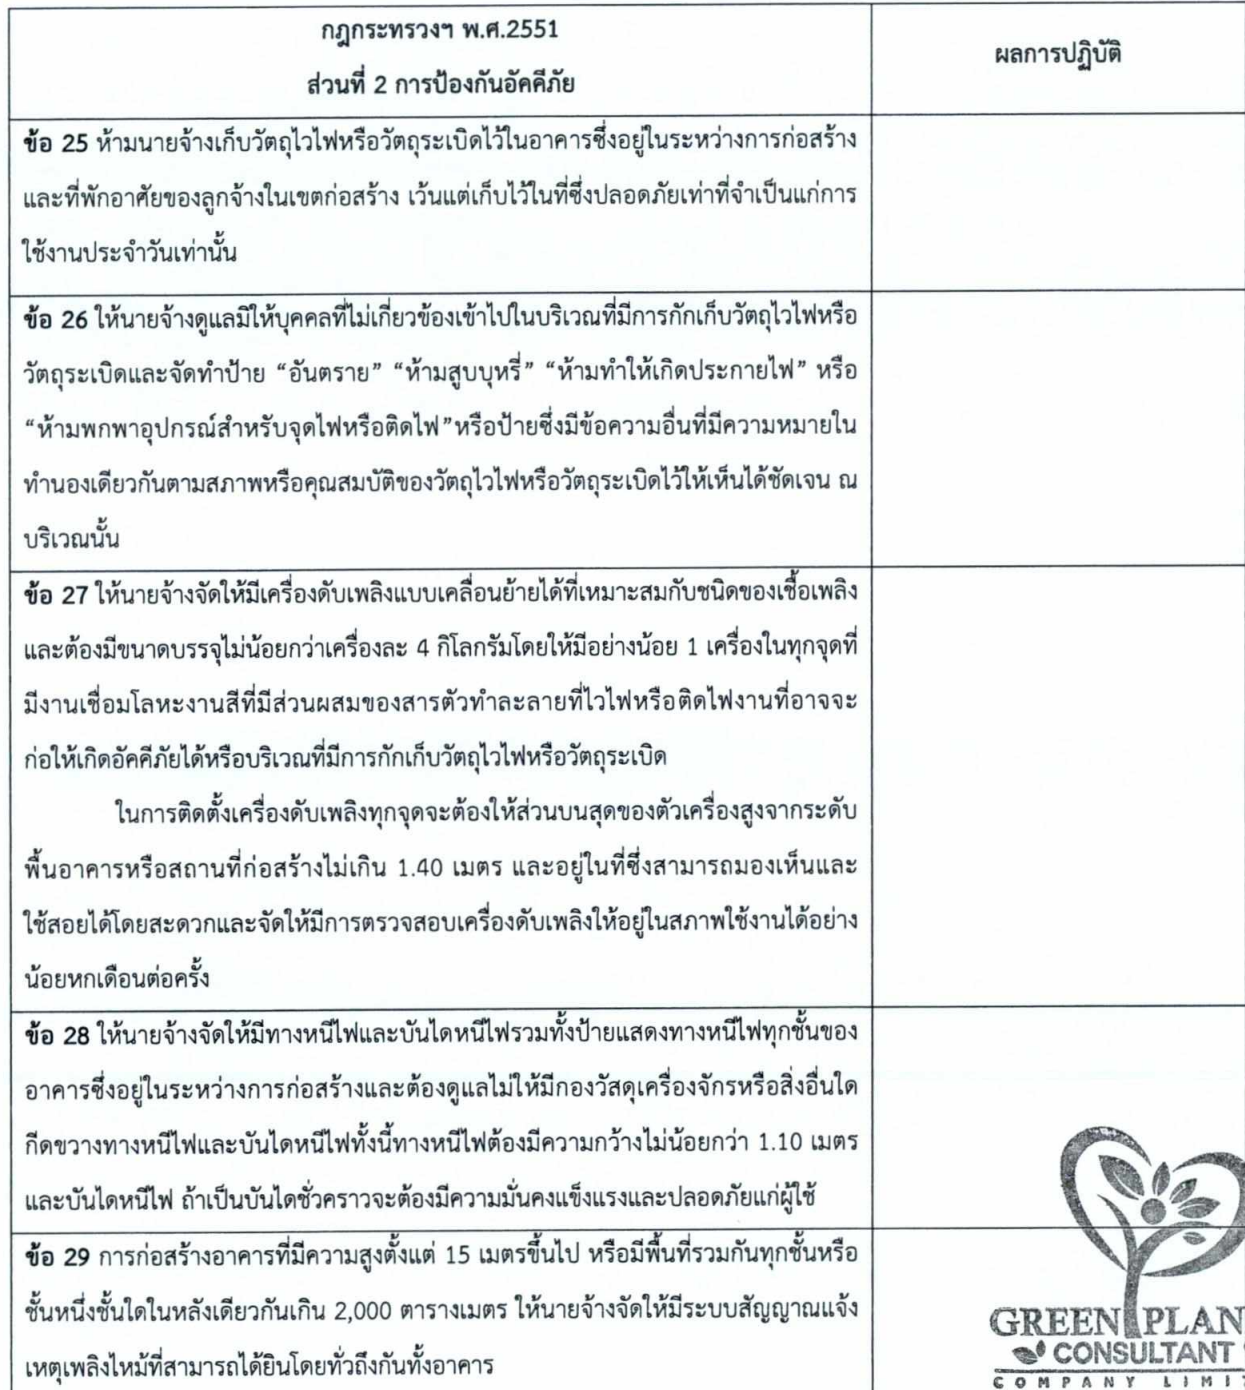 กฎกระทรวงฯ พ.ศ.2551
ส่วนที่ 2 การป้องกันอัคคีภัย
ผลการปฏิบัติ
ข้อ 25 ห้ามนายจ้างเก็บวัตถุไวไฟหรือวัตถุระเบิดไว้ในอาคารซึ่งอยู่ในระหว่างการก่อสร้าง
และที่พักอาศัยของลูกจ้างในเขตก่อสร้าง เว้นแต่เก็บไว้ในที่ซึ่งปลอดภัยเท่าที่จำเป็นแก่การ
ใช้งานประจำวันเท่านั้น
ข้อ 26 ให้นายจ้างดูแลมิให้บุคคลที่ไม่เกี่ยวข้องเข้าไปในบริเวณที่มีการกักเก็บวัตถุไวไฟหรือ
วัตถุระเบิดและจัดทำป้าย “อันตราย” “ห้ามสูบบุหรี่” “ห้ามทำให้เกิดประกายไฟ” หรือ
“ห้ามพกพาอุปกรณ์สำหรับจุดไฟหรือติดไฟ”หรือป้ายซึ่งมีข้อความอื่นที่มีความหมายใน
ทำนองเดียวกันตามสภาพหรือคุณสมบัติของวัตถุไวไฟหรือวัตถุระเบิดไว้ให้เห็นได้ชัดเจน ณ
บริเวณนั้น
ข้อ 27 ให้นายจ้างจัดให้มีเครื่องดับเพลิงแบบเคลื่อนย้ายได้ที่เหมาะสมกับชนิดของเชื้อเพลิง
และต้องมีขนาดบรรจุไม่น้อยกว่าเครื่องละ 4 กิโลกรัมโดยให้มีอย่างน้อย 1 เครื่องในทุกจุดที่
มีงานเชื่อมโลหะงานสีที่มีส่วนผสมของสารตัวทำละลายที่ไวไฟหรือติดไฟงานที่อาจจะ
ก่อให้เกิดอัคคีภัยได้หรือบริเวณที่มีการกักเก็บวัตถุไวไฟหรือวัตถุระเบิด
ในการติดตั้งเครื่องดับเพลิงทุกจุดจะต้องให้ส่วนบนสุดของตัวเครื่องสูงจากระดับ
พื้นอาคารหรือสถานที่ก่อสร้างไม่เกิน 1.40 เมตร และอยู่ในที่ซึ่งสามารถมองเห็นและ
ใช้สอยได้โดยสะดวกและจัดให้มีการตรวจสอบเครื่องดับเพลิงให้อยู่ในสภาพใช้งานได้อย่าง
น้อยหกเดือนต่อครั้ง
ข้อ 28 ให้นายจ้างจัดให้มีทางหนีไฟและบันไดหนีไฟรวมทั้งป้ายแสดงทางหนีไฟทุกชั้นของ
อาคารซึ่งอยู่ในระหว่างการก่อสร้างและต้องดูแลไม่ให้มีกองวัสดุเครื่องจักรหรือสิ่งอื่นใด
กีดขวางทางหนีไฟและบันไดหนีไฟทั้งนี้ทางหนีไฟต้องมีความกว้างไม่น้อยกว่า 1.10 เมตร
และบันไดหนีไฟ ถ้าเป็นบันไดชั่วคราวจะต้องมีความมั่นคงแข็งแรงและปลอดภัยแก่ผู้ใช้
ข้อ 29 การก่อสร้างอาคารที่มีความสูงตั้งแต่ 15 เมตรขึ้นไป หรือมีพื้นที่รวมกันทุกชั้นหรือ
ชั้นหนึ่งชั้นใดในหลังเดียวกันเกิน 2,000 ตารางเมตร ให้นายจ้างจัดให้มีระบบสัญญาณแจ้ง
เหตุเพลิงไหม้ที่สามารถได้ยินโดยทั่วถึงกันทั้งอาคาร
GREEN PLAN
CONSULTANT
COMPANY LIMIT